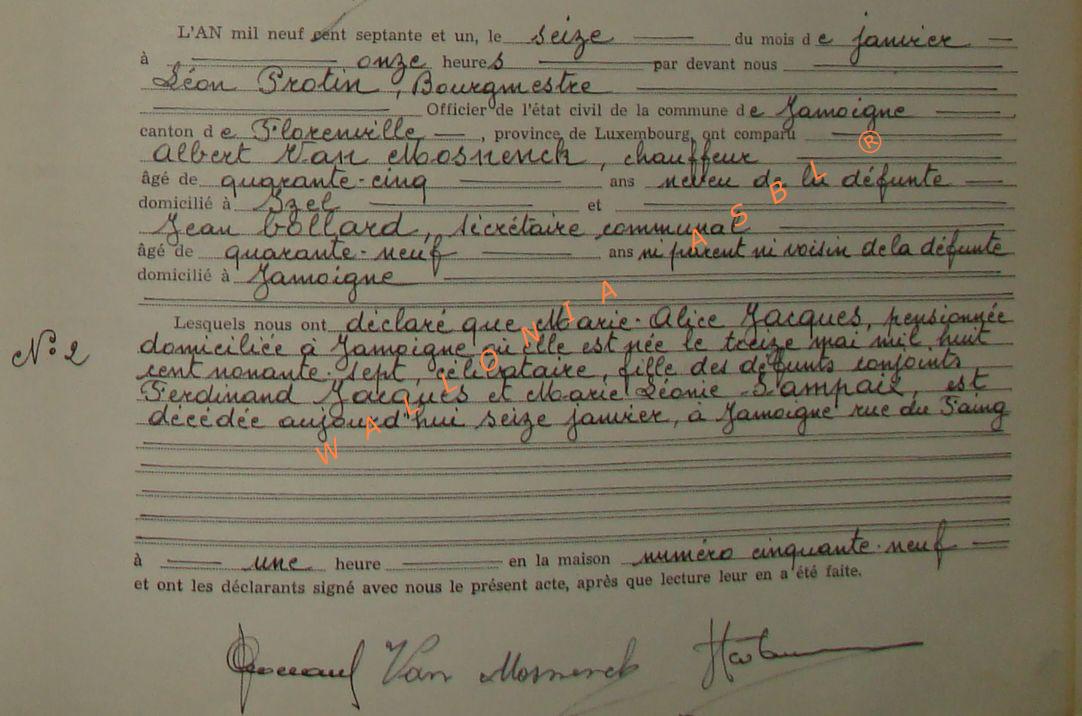 L'AN mil neuf cent septante et un, le seize du mois de janvier
à onze heures par devant nous
Léon Protin, Bourgmestre
Officier de l'état civil de la commune de Jamoigne,
canton de Florenville, province de Luxembourg, ont comparu
Albert Van Mosnenck, chauffeur
âgé de quarante-cinq ans neveu de la défunte
domicilié à Izel et
Jean Gollard, secrétaire communal
âgé de quarante-neuf ans ni parent ni voisin de la défunte
domicilié à Jamoigne
Lesquels nous ont déclaré que Marie-Alice Jacques, pensionnée
N° 2
domiciliée à Jamoigne où elle est née le treize mai mil huit
cent nonante-sept, célibataire, fille des défunts conjoints
Ferdinand Jacques et Marie Léonie Lampaix, est
décédée aujourd'hui seize janvier, à Jamoigne rue du Faing
à une heure en la maison numéro cinquante-neuf
et ont les déclarants signé avec nous le présent acte, après que lecture leur en a été faite.
Van Mosnenck
WALLONIA ASBL ®